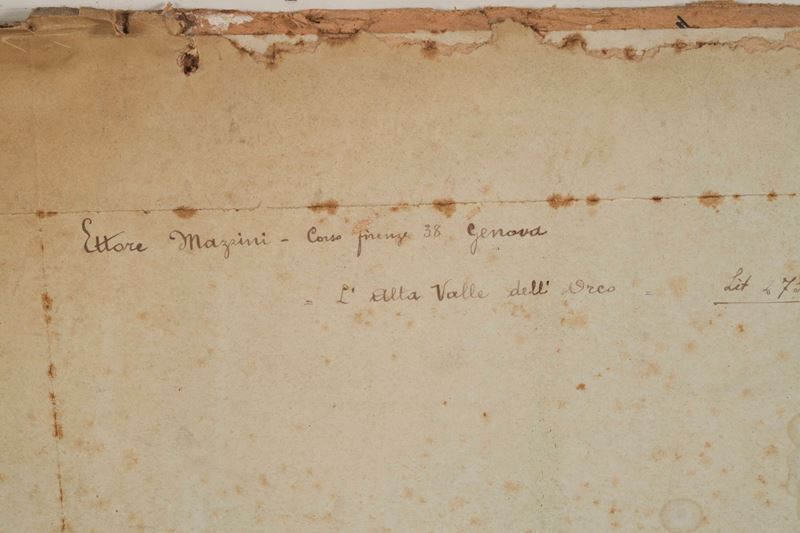 Ettore Mazzini - Corso firenze 38 Genova
= L' Alta Valle dell' Orco = Lit